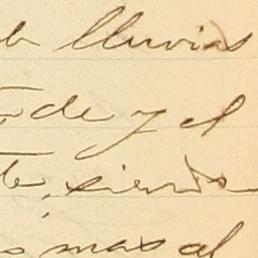 lluvias
de y el
te, siendo
mas al